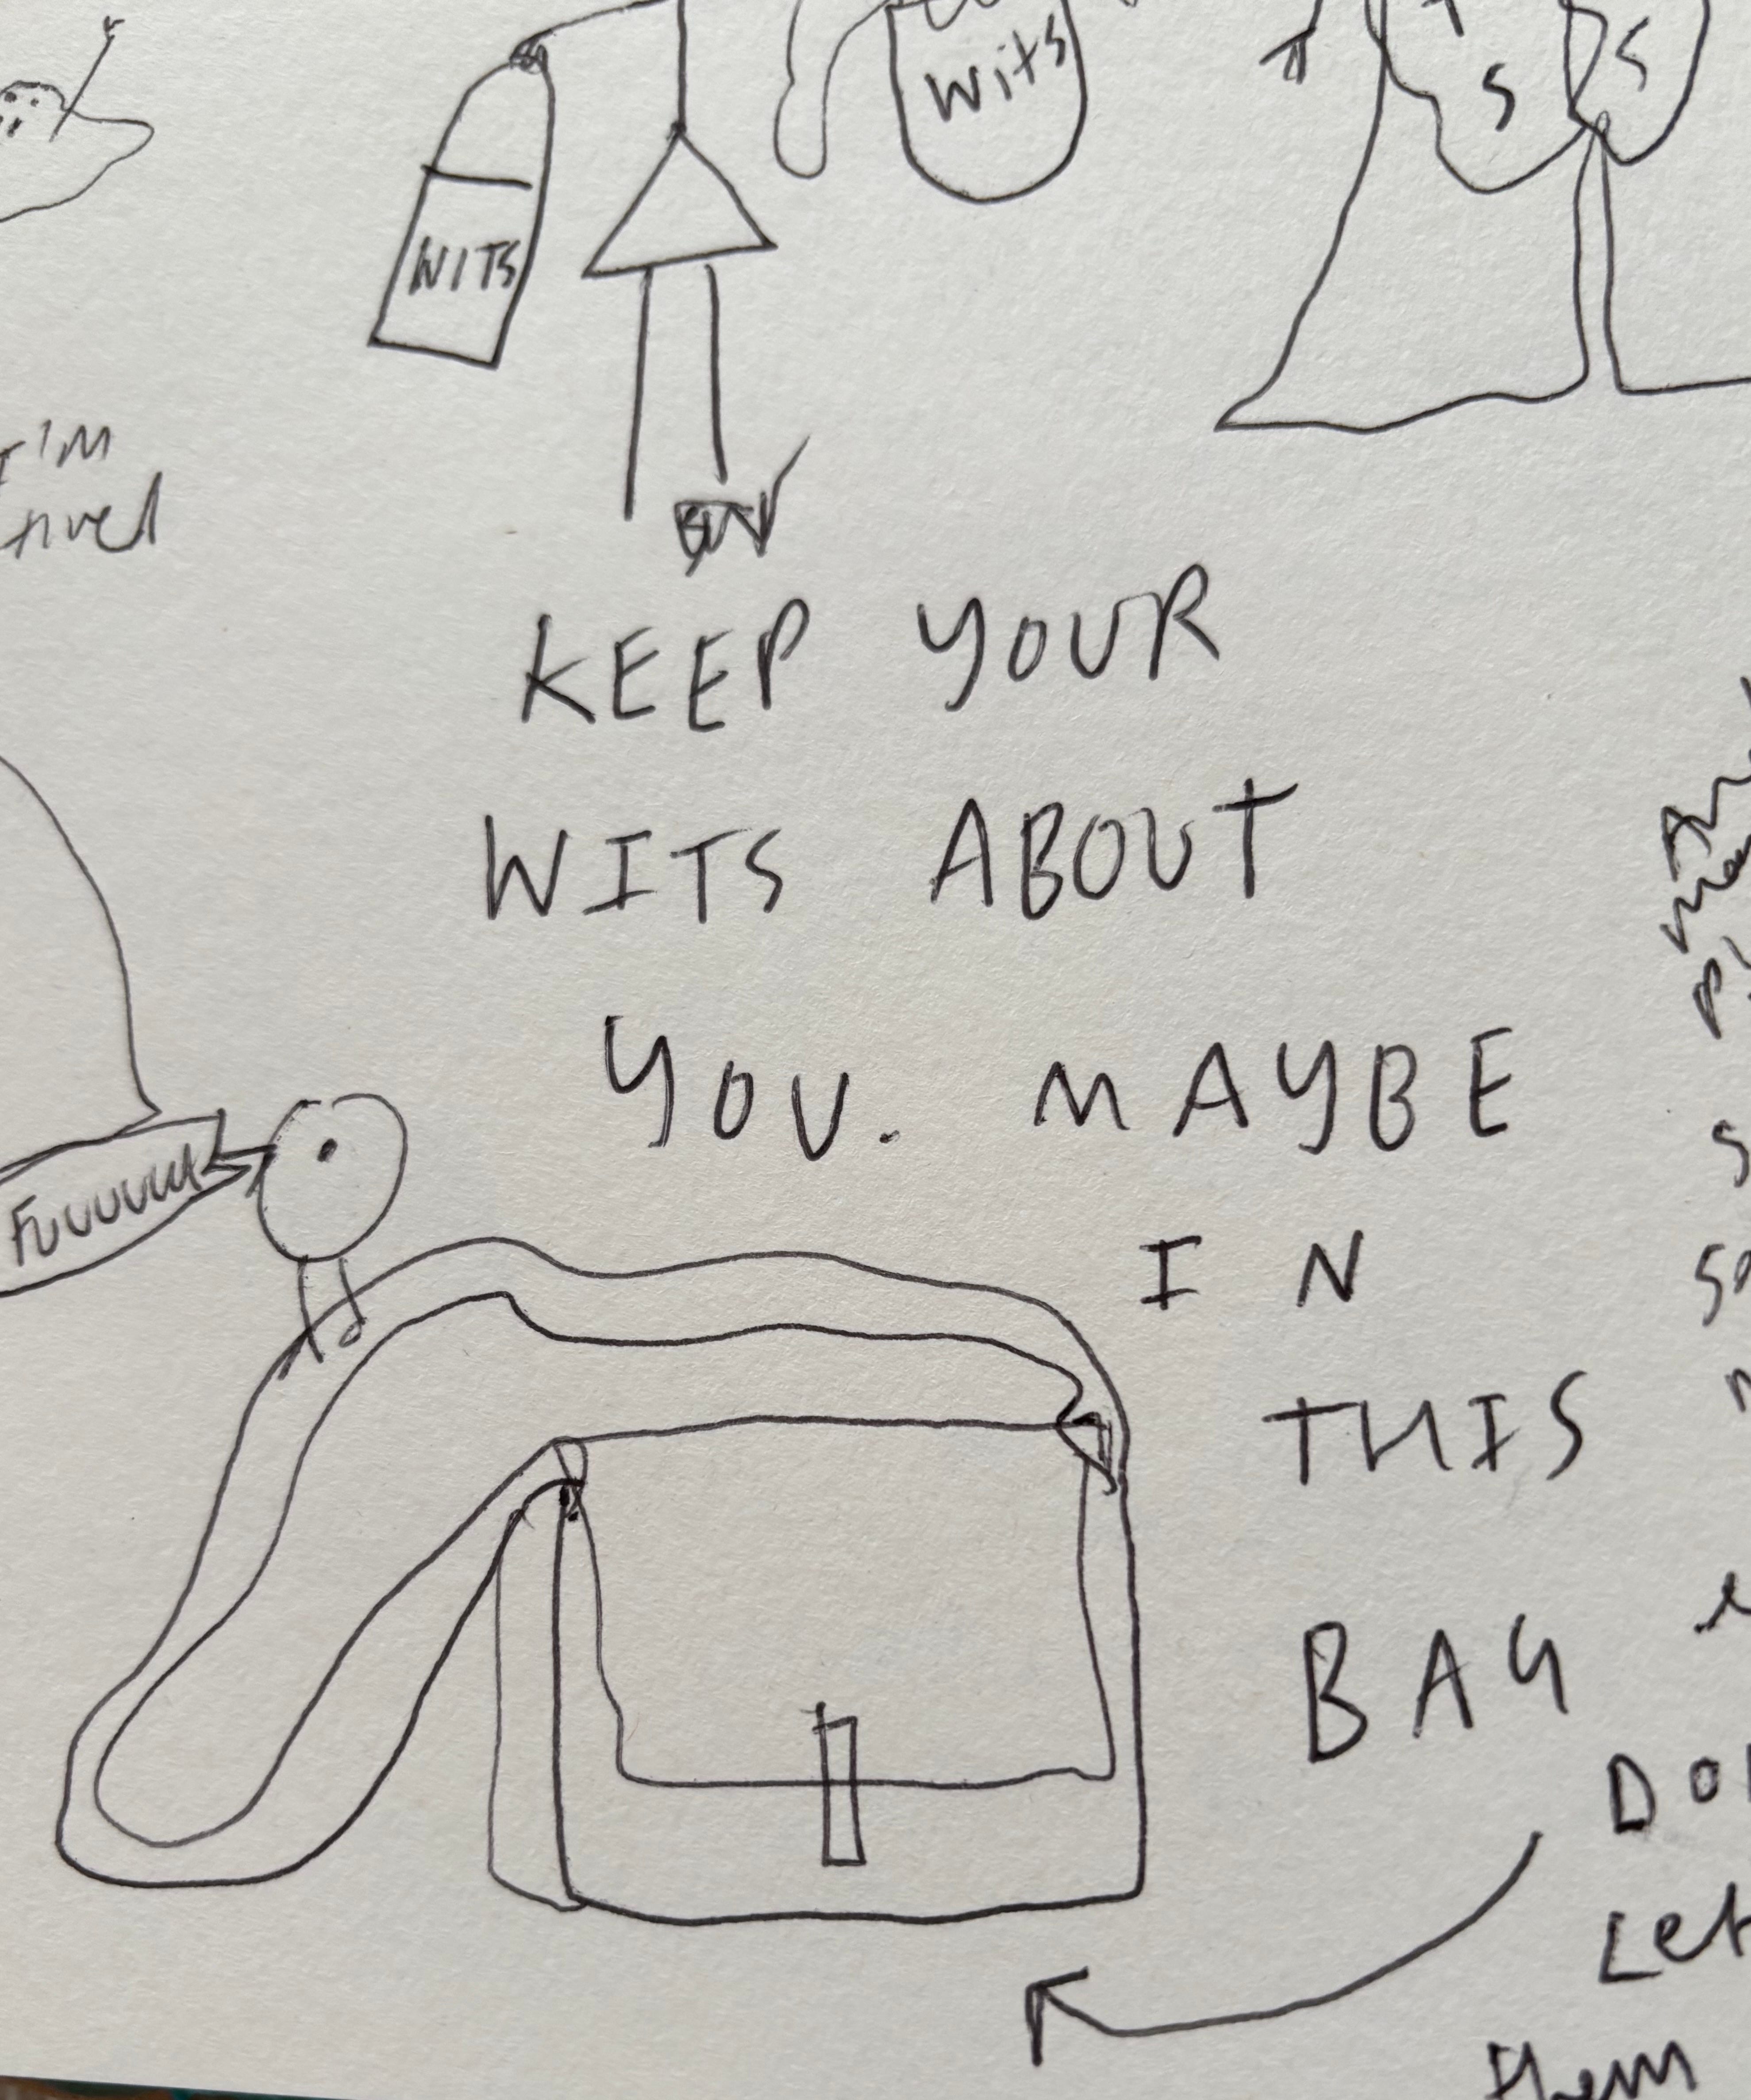 Wits
S
S
WITS
I'M
KEEP YOUR
WITS ABOUT
YOU. MAYBE
IN
THIS
BAG
FUUUUUU
Let
them